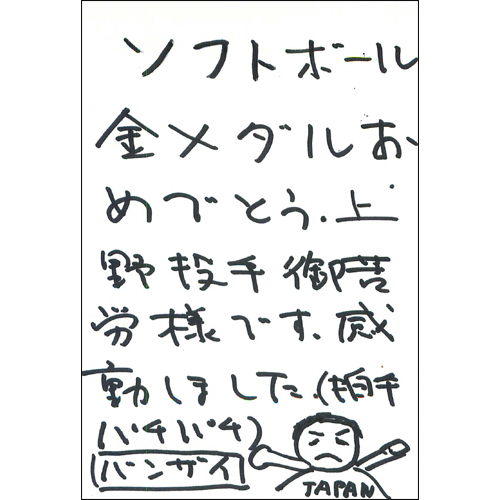 ソフトボール
金メダルお
めでとう.上
野投手御苦
労様です、感
動しました.(拍手
パチパチ)
バンザイ
JAPAN